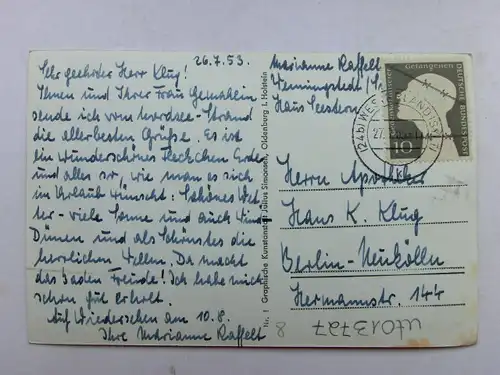 26.7.53.
Sehr geehrter Herr Klug!
Ihnen und Ihrer Frau Gemahlin
sende ich vom Nordsee-Strand
die allerbesten Grüße. Es ist
ein wunderschönes Fleckchen Erde
und alles so, wie man es sich
im Urlaub wünscht: Schönes Wet-
ter - viele Sonne und auch Wind
Dünen und als Schönstes die
herrlichen Wellen. Da macht
das Baden Freude! Ich habe mich
schon gut erholt.
Auf Wiedersehen am 10.8.
Ihre Marianne Raffelt
Nr. 1 Graphische Kunstanstalt Julius Simonsen, Oldenburg i. Holstein
Marianne Raffelt
Wenningstedt/
Haus Seestern
Gefangenen
DEUTSCHE BUNDESPOST
10
(24b) WESTERLAND (SYLT)
27.
Herrn Apotheker
Hans K. Klug
Berlin-Neukölln
Hermannstr. 144
uf013727
8